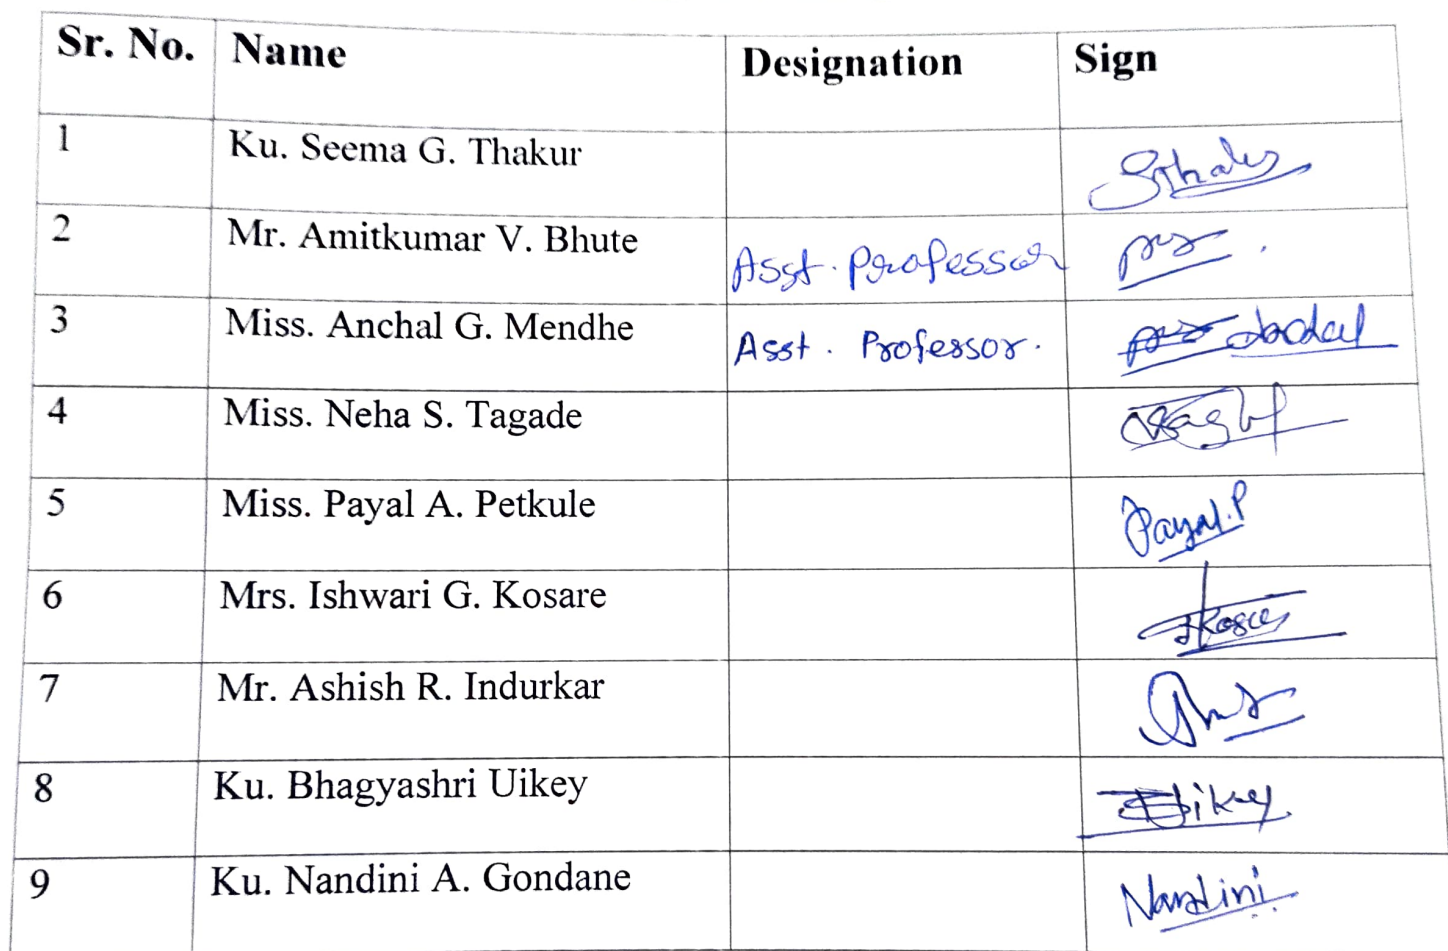 Sr. No. Name Designation Sign
1 Ku. Seema G. Thakur
2 Mr. Amitkumar V. Bhute Asst. Professor
3 Miss. Anchal G. Mendhe Asst. Professor.
4 Miss. Neha S. Tagade
5 Miss. Payal A. Petkule Payal.P
6 Mrs. Ishwari G. Kosare
7 Mr. Ashish R. Indurkar
8 Ku. Bhagyashri Uikey Uikey
9 Ku. Nandini A. Gondane Nandini